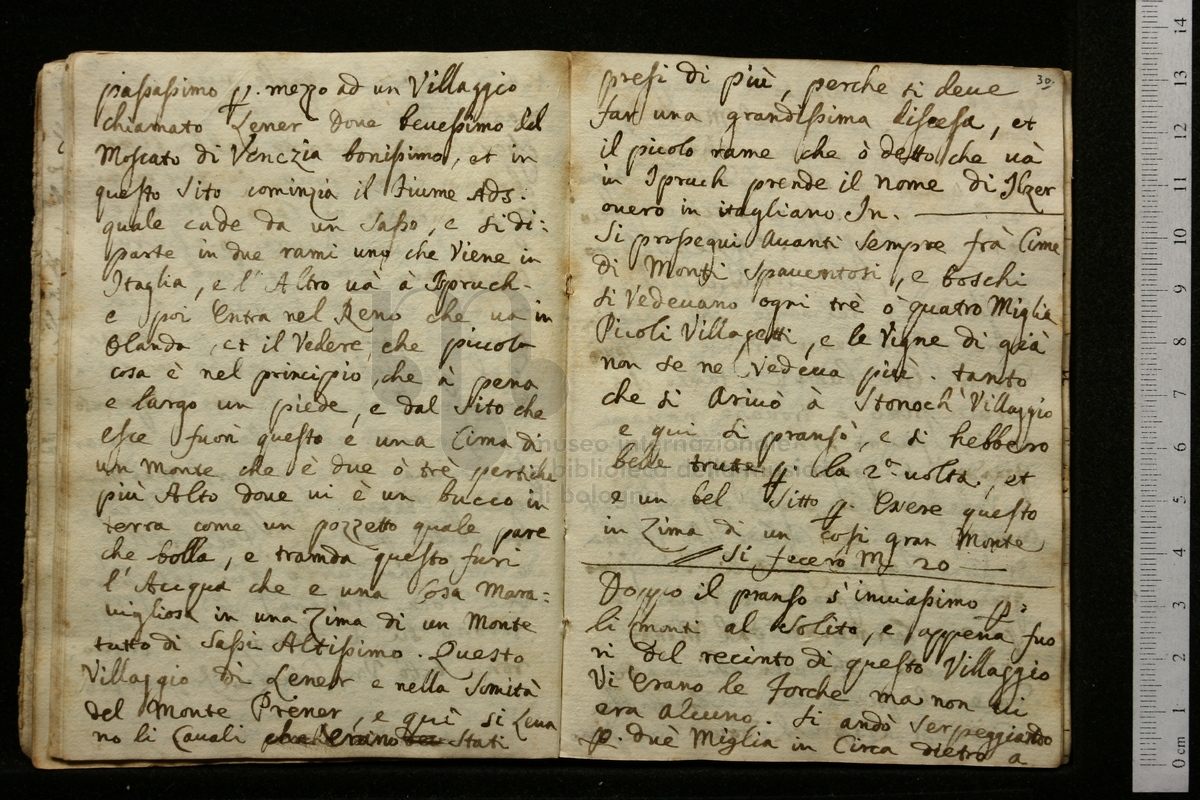 passassimo p. mezzo ad un Villaggio
chiamato Lener Dove bevessimo del
Moscato di Venezia bonissimo, et in
questo Sito cominzia il Fiume Ads.
quale cade da un Sasso, e si di:
parte in due rami uno che Viene in
Itaglia, e l'Altro và à Ispruch
e poi Entra nel Reno che va in
Olanda, et il Vedere, che piccola
cosa è nel principio, che à pena
e largo un piede, e dal Sito che
esce fuori questo è una Cima di
un Monte che è due ò trè pertiche
più Alto dove vi è un bucco in
terra come un pozzetto quale pare
che bolla, e tramda questo furi
l'Acqua che e una Cosa Mara:
vigliosa in una Zima di un Monte
tutto di Sassi Altissimo. Questo
Villaggio di Lener e nella Somità
del Monte Prener, e quì si Leva
no li Cavali Stati
30.
presi di più, perche si deve
far una grandissima discesa, et
il picolo rame che ò detto che và
in Ipruch prende il nome di Ilzer
overo in itagliano In.
Si prosequì Avanti Sempre frà Cime
di Monti Spaventosi, e boschi
si Vedevano ogni trè ò quatro Miglia
Picoli Villagetti, e le Vigne di già
non se ne Vedeva più. tanto
che si Arivò à Stonoch Villaggio
e qui si pransò, e si hebbero
belle trutte p. la 2a volta, et
e un bel Sitto p. Exere questo
in Zima di un Cosi gran Monte
Si fecero M. 20
Doppo il pranso s'inviassimo p.
li monti al Solito, e appena fuo
ri del recinto di questo Villaggio
Vi Erano le Forche ma non vi
era alcuno. Si andò Serpeggiando
p. duè Miglia in Circa dietro a
museo internazionale
e biblioteca della musica
di bologna
0 cm 1 2 3 4 5 6 7 8 9 10 11 12 13 14